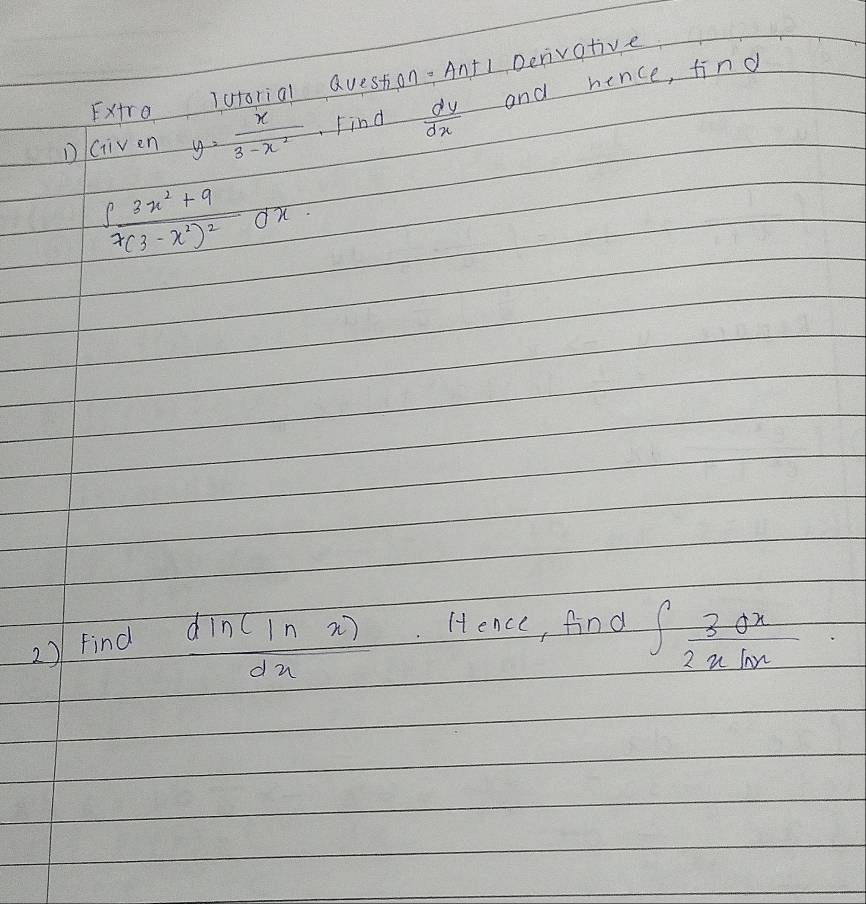 Extra Tutorial Question - Anti Derivative
1) Given y = x / (3 - x²). Find dy/dx and hence, find
∫ (3x² + 9) / (7(3 - x²)²) dx.
2) Find d ln( ln x) / dx. Hence, find ∫ 3 dx / (2 x ln x).